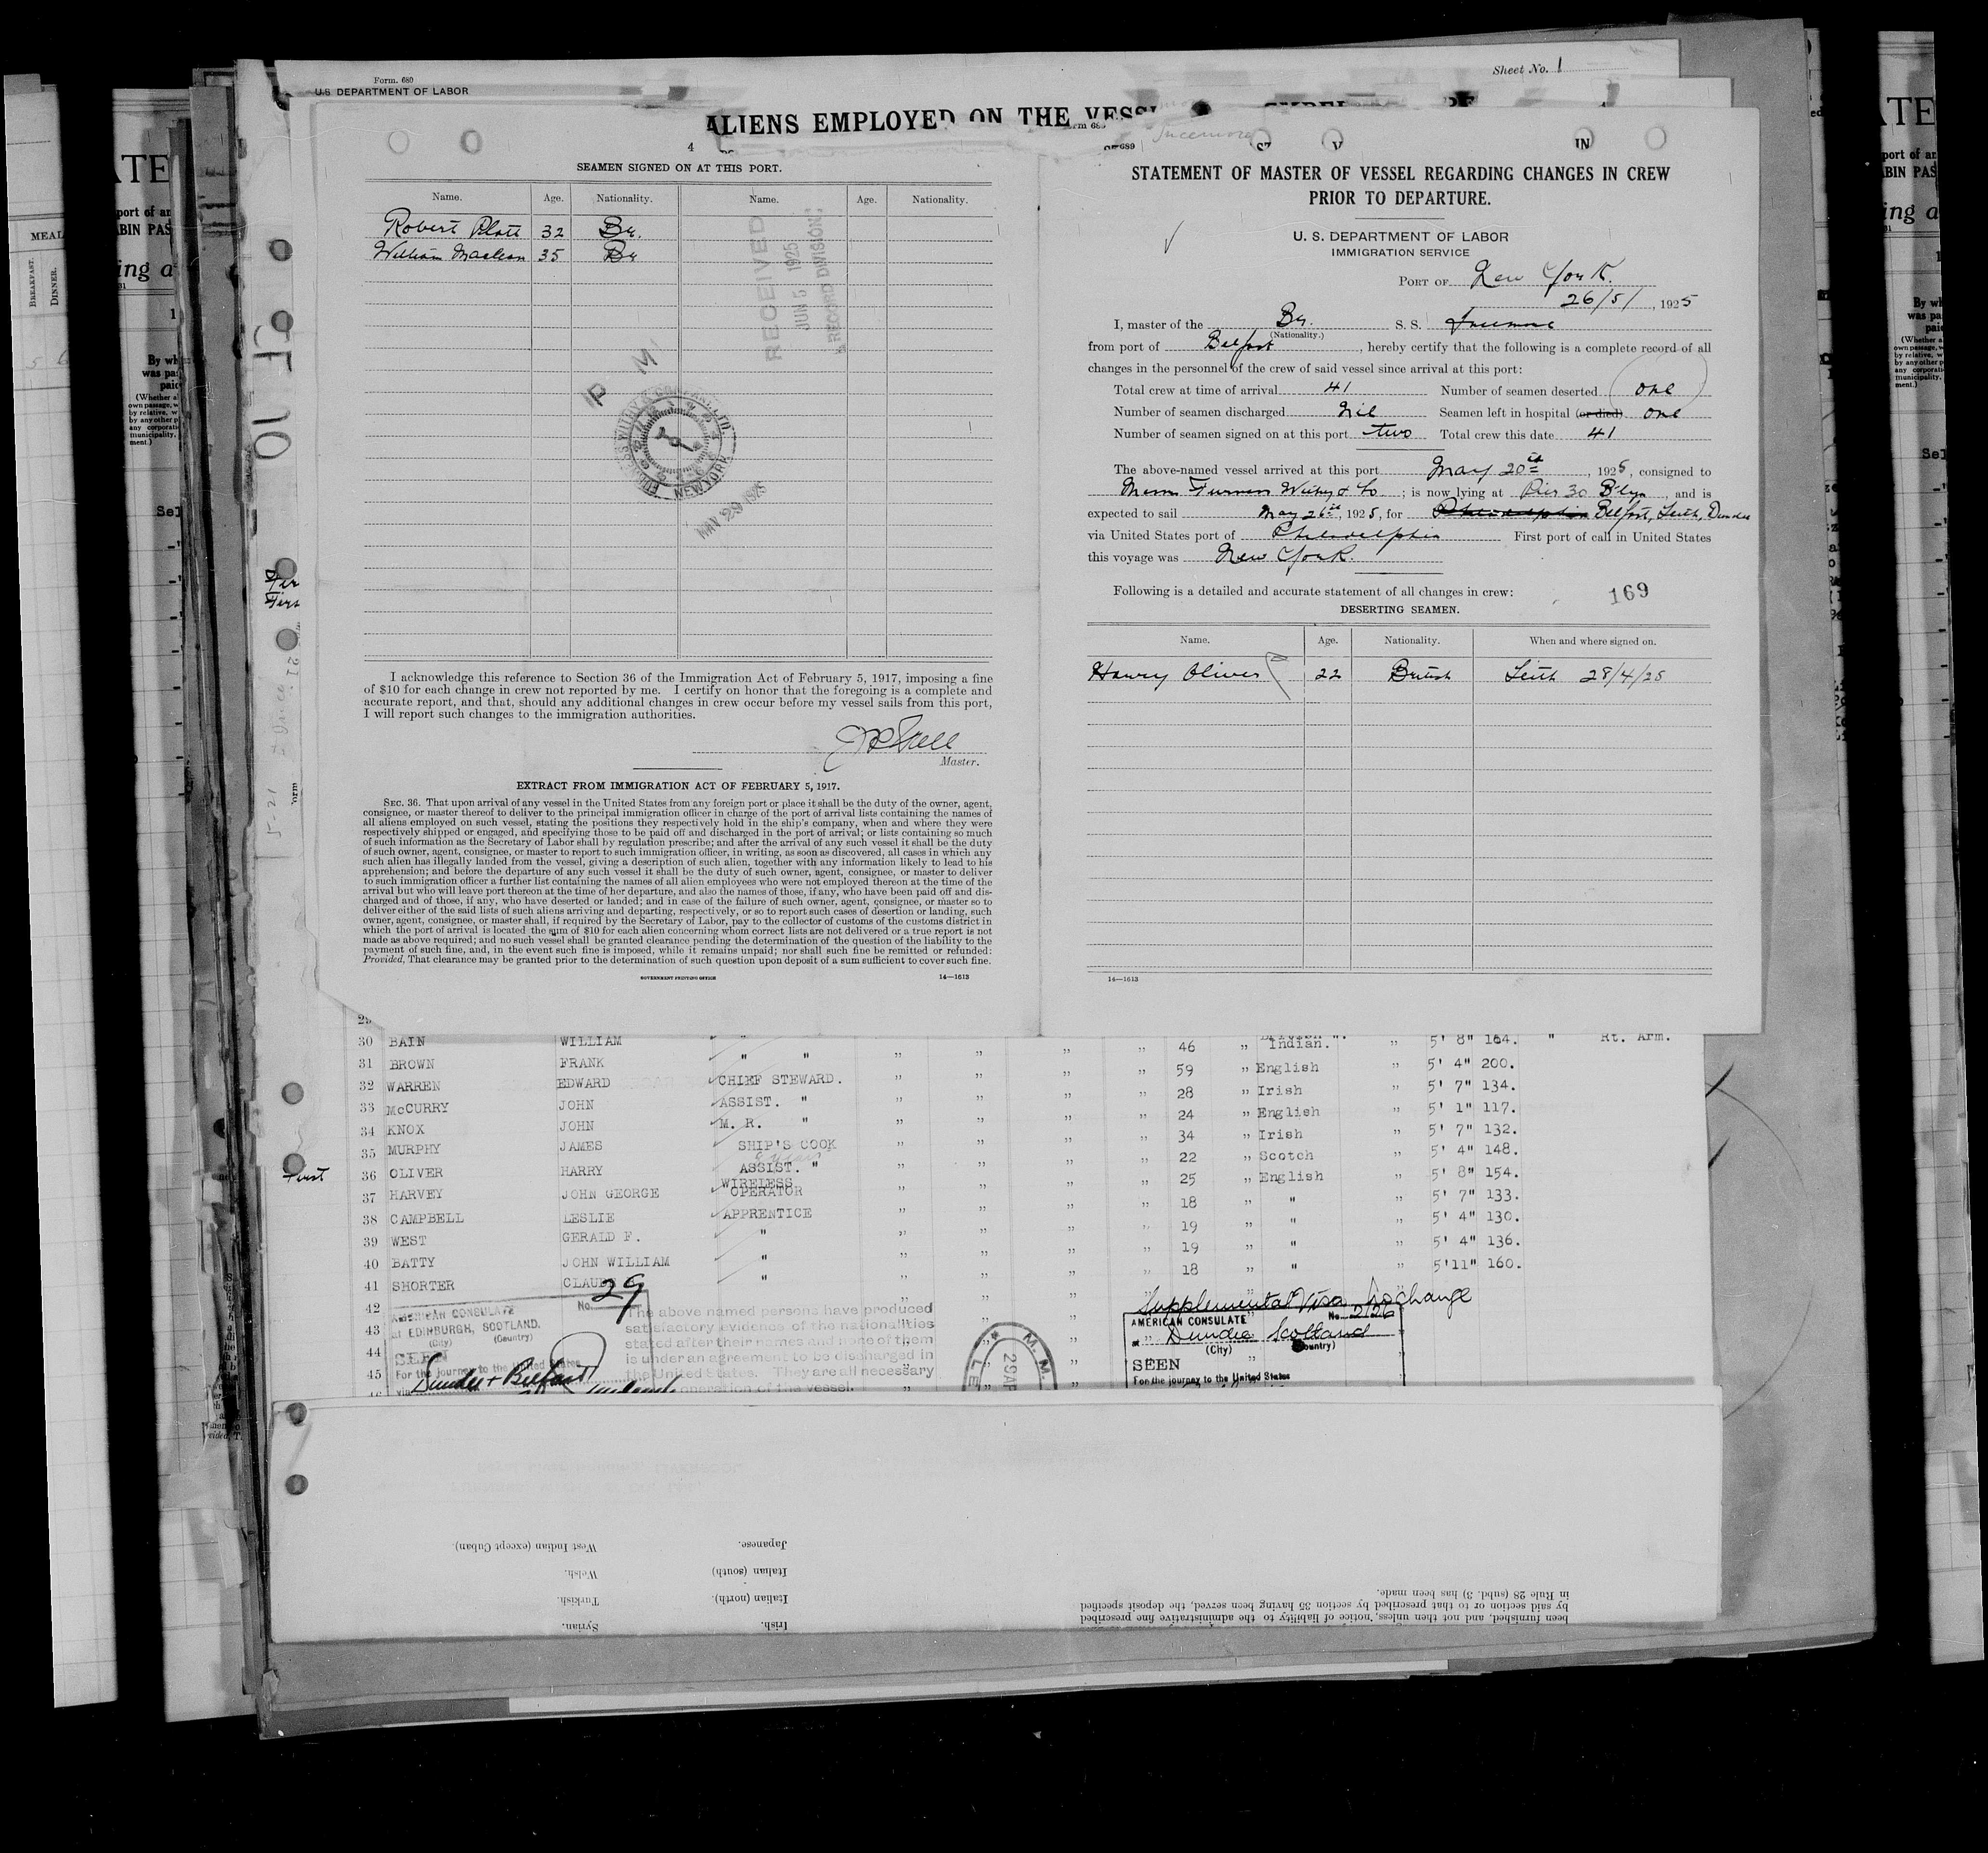 Form. 680
U.S. DEPARTMENT OF LABOR
Sheet No. 1
ALIENS EMPLOYED ON THE
4
SEAMEN SIGNED ON AT THIS PORT.
Name. Age. Nationality. Name. Age. Nationality.
Robert Platt 32 Br.
William Maclean 35 Br
RECEIVED
JUN 5 1925
RECORD DIVISION
P M
FURNESS WITHY & CO
NEW YORK
MAY 29 1925
I acknowledge this reference to Section 36 of the Immigration Act of February 5, 1917, imposing a fine
of $10 for each change in crew not reported by me. I certify on honor that the foregoing is a complete and
accurate report, and that, should any additional changes in crew occur before my vessel sails from this port,
I will report such changes to the immigration authorities.
Master.
EXTRACT FROM IMMIGRATION ACT OF FEBRUARY 5, 1917.
SEC. 36. That upon arrival of any vessel in the United States from any foreign port or place it shall be the duty of the owner, agent,
consignee, or master thereof to deliver to the principal immigration officer in charge of the port of arrival lists containing the names of
all aliens employed on such vessel, stating the positions they respectively hold in the ship's company, when and where they were
respectively shipped or engaged, and specifying those to be paid off and discharged in the port of arrival; or lists containing so much
of such information as the Secretary of Labor shall by regulation prescribe; and after the arrival of any such vessel it shall be the duty
of such owner, agent, consignee, or master to report to such immigration officer, in writing, as soon as discovered, all cases in which any
such alien has illegally landed from the vessel, giving a description of such alien, together with any information likely to lead to his
apprehension; and before the departure of any such vessel it shall be the duty of such owner, agent, consignee, or master to deliver
to such immigration officer a further list containing the names of all alien employees who were not employed thereon at the time of the
arrival but who will leave port thereon at the time of her departure, and also the names of those, if any, who have been paid off and dis-
charged and of those, if any, who have deserted or landed; and in case of the failure of such owner, agent, consignee, or master so to
deliver either of the said lists of such aliens arriving and departing, respectively, or so to report such cases of desertion or landing, such
owner, agent, consignee, or master shall, if required by the Secretary of Labor, pay to the collector of customs of the customs district in
which the port of arrival is located the sum of $10 for each alien concerning whom correct lists are not delivered or a true report is not
made as above required; and no such vessel shall be granted clearance pending the determination of the question of the liability to the
payment of such fine, and, in the event such fine is imposed, while it remains unpaid; nor shall such fine be remitted or refunded:
Provided, That clearance may be granted prior to the determination of such question upon deposit of a sum sufficient to cover such fine.
GOVERNMENT PRINTING OFFICE 14—1613
STATEMENT OF MASTER OF VESSEL REGARDING CHANGES IN CREW
PRIOR TO DEPARTURE.
U. S. DEPARTMENT OF LABOR
IMMIGRATION SERVICE
PORT OF New York.
26/5/, 1925
I, master of the Br. S. S. Incemore
(Nationality.)
from port of Belfast, hereby certify that the following is a complete record of all
changes in the personnel of the crew of said vessel since arrival at this port:
Total crew at time of arrival 41 Number of seamen deserted one
Number of seamen discharged Nil Seamen left in hospital (or died) one
Number of seamen signed on at this port two Total crew this date 41
The above-named vessel arrived at this port May 20th, 1925, consigned to
Messrs Furness Withy & Co; is now lying at Pier 30 B'lyn, and is
expected to sail May 26th, 1925, for Philadelphia Belfast, Leith, Dundee
via United States port of Philadelphia First port of call in United States
this voyage was New York.
Following is a detailed and accurate statement of all changes in crew:
169
DESERTING SEAMEN.
Name. Age. Nationality. When and where signed on.
Harry Oliver 22 British Leith 28/4/25
14—1613
29
30 BAIN WILLIAM " 46 " Indian. " 5' 8" 164. " Rt. Arm.
31 BROWN FRANK " " " " " " 59 " English " 5' 4" 200.
32 WARREN EDWARD CHIEF STEWARD. " " " " 28 " Irish " 5' 7" 134.
33 McCURRY JOHN ASSIST. " " " " " 24 " English " 5' 1" 117.
34 KNOX JOHN M. R. " " " " " 34 " Irish " 5' 7" 132.
35 MURPHY JAMES SHIP'S COOK " " " " 22 " Scotch " 5' 4" 148.
36 OLIVER HARRY ASSIST. " " " " " 25 " English " 5' 8" 154.
37 HARVEY JOHN GEORGE WIRELESS OPERATOR " " " " 18 " " " 5' 7" 133.
38 CAMPBELL LESLIE APPRENTICE " " " " 19 " " " 5' 4" 130.
39 WEST GERALD F. " " " " " 19 " " " 5' 4" 136.
40 BATTY JOHN WILLIAM " " " " " 18 " " " 5'11" 160.
41 SHORTER CLAUDE "
42
43
44
45
First
AMERICAN CONSULATE No. 29
at EDINBURGH, SCOTLAND.
(City) (Country)
SEEN
For the journey to the United States
via Dundee & Belfast
The above named persons have produced
satisfactory evidence of the nationalities
stated after their names and none of them
is under an agreement to be discharged in
the United States. They are all necessary
operation of the vessel.
29 AP
Supplemental Visa No change
AMERICAN CONSULATE No. 2/26
at Dundee Scotland
(City) (Country)
SEEN
For the journey to the United States
West Indian (except Cuban).
Welsh.
Turkish.
Syrian.
Japanese.
Italian (south)
Italian (north).
Irish.
been furnished, and not then unless, notice of liability to the administrative fine prescribed
by said section or to that prescribed by section 35 having been served, the deposit specified
in Rule 28 (subd. 3) has been made.